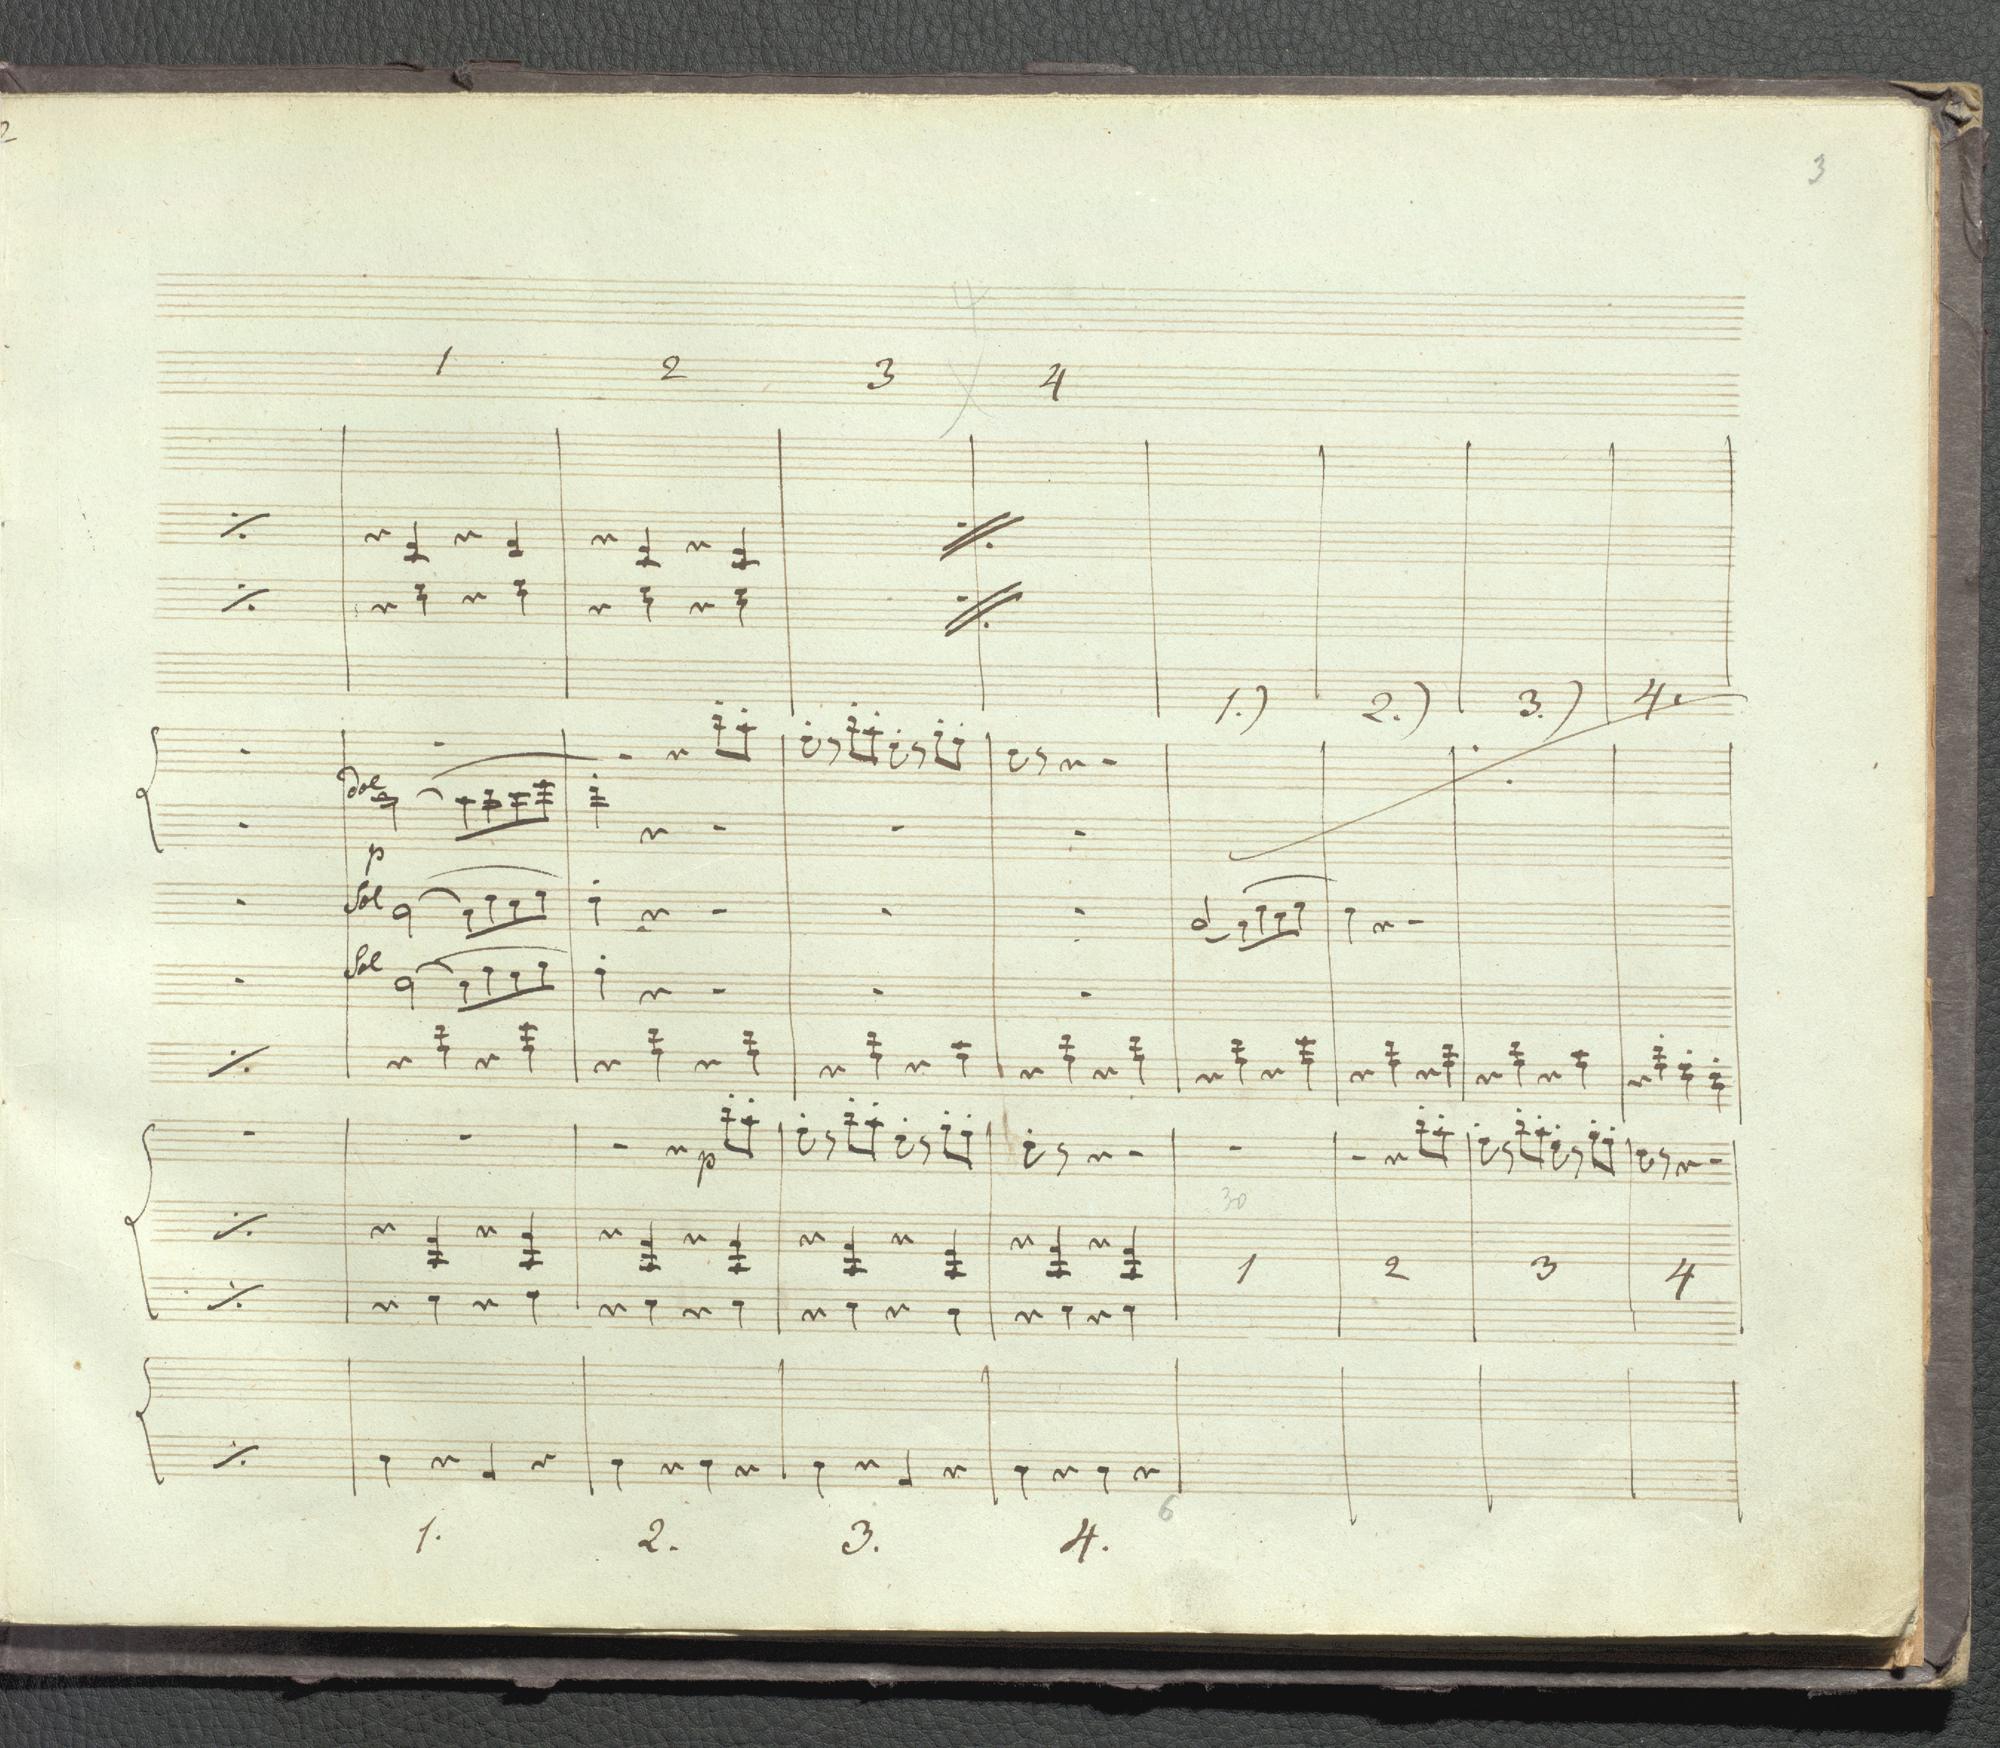 2
3
4
1 2 3 4
1.) 2.) 3.) 4.
dol
p
Sol
Sol
p
30
1 2 3 4
6
1. 2. 3. 4.